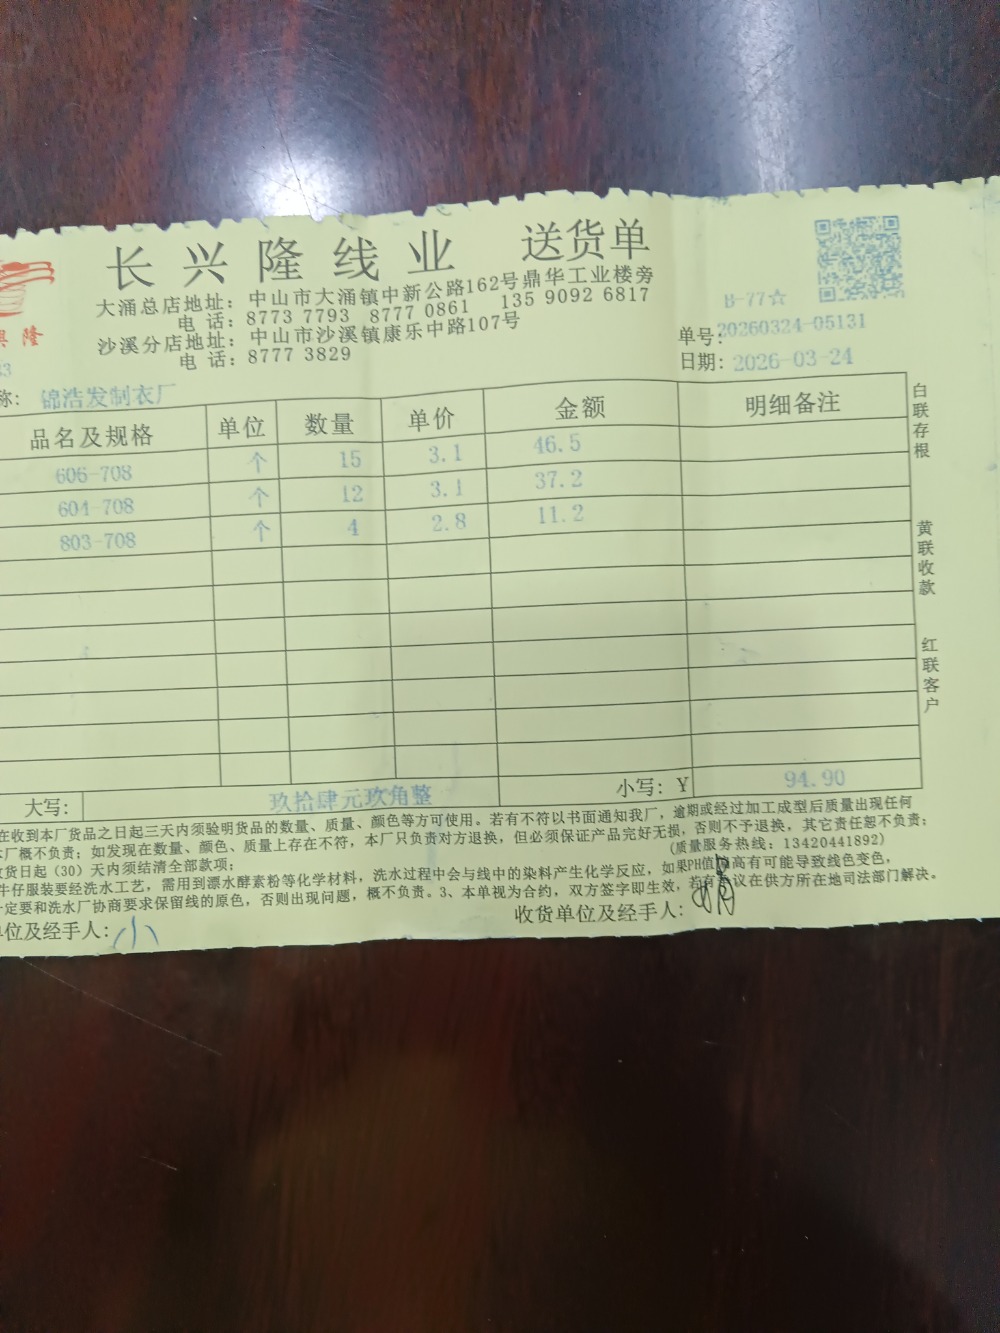 长兴隆线业 送货单
大涌总店地址：中山市大涌镇中新公路162号鼎华工业楼旁
电话：8773 7793 8777 0861 135 9092 6817
沙溪分店地址：中山市沙溪镇康乐中路107号
电话：8777 3829
B-77☆
单号：20260324-05131
日期：2026-03-24
隆
称：锦浩发制衣厂
品名及规格 单位 数量 单价 金额 明细备注
606-708 个 15 3.1 46.5
604-708 个 12 3.1 37.2
803-708 个 4 2.8 11.2
大写：玖拾肆元玖角整 小写：￥ 94.90
白联存根
黄联收款
红联客户
在收到本厂货品之日起三天内须验明货品的数量、质量、颜色等方可使用。若有不符以书面通知我厂，逾期或经过加工成型后质量出现任何
厂概不负责；如发现在数量、颜色、质量上存在不符，本厂只负责对方退换，但必须保证产品完好无损，否则不予退换，其它责任恕不负责；
货日起（30）天内须结清全部款项； (质量服务热线：13420441892)
牛仔服装要经洗水工艺，需用到漂水酵素粉等化学材料，洗水过程中会与线中的染料产生化学反应，如果PH值高有可能导致线色变色，
定要和洗水厂协商要求保留线的原色，否则出现问题，概不负责。3、本单视为合约，双方签字即生效，若有议在供方所在地司法部门解决。
位及经手人：小 收货单位及经手人：